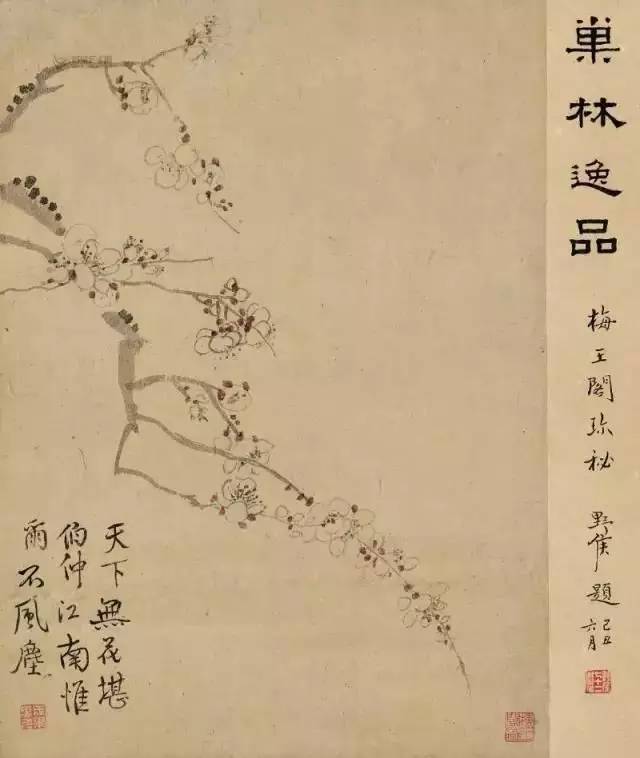 巢林逸品
梅王閣珍秘　黙侯題
己丑
六月
天下無花堪
伯仲江南惟
爾不風塵